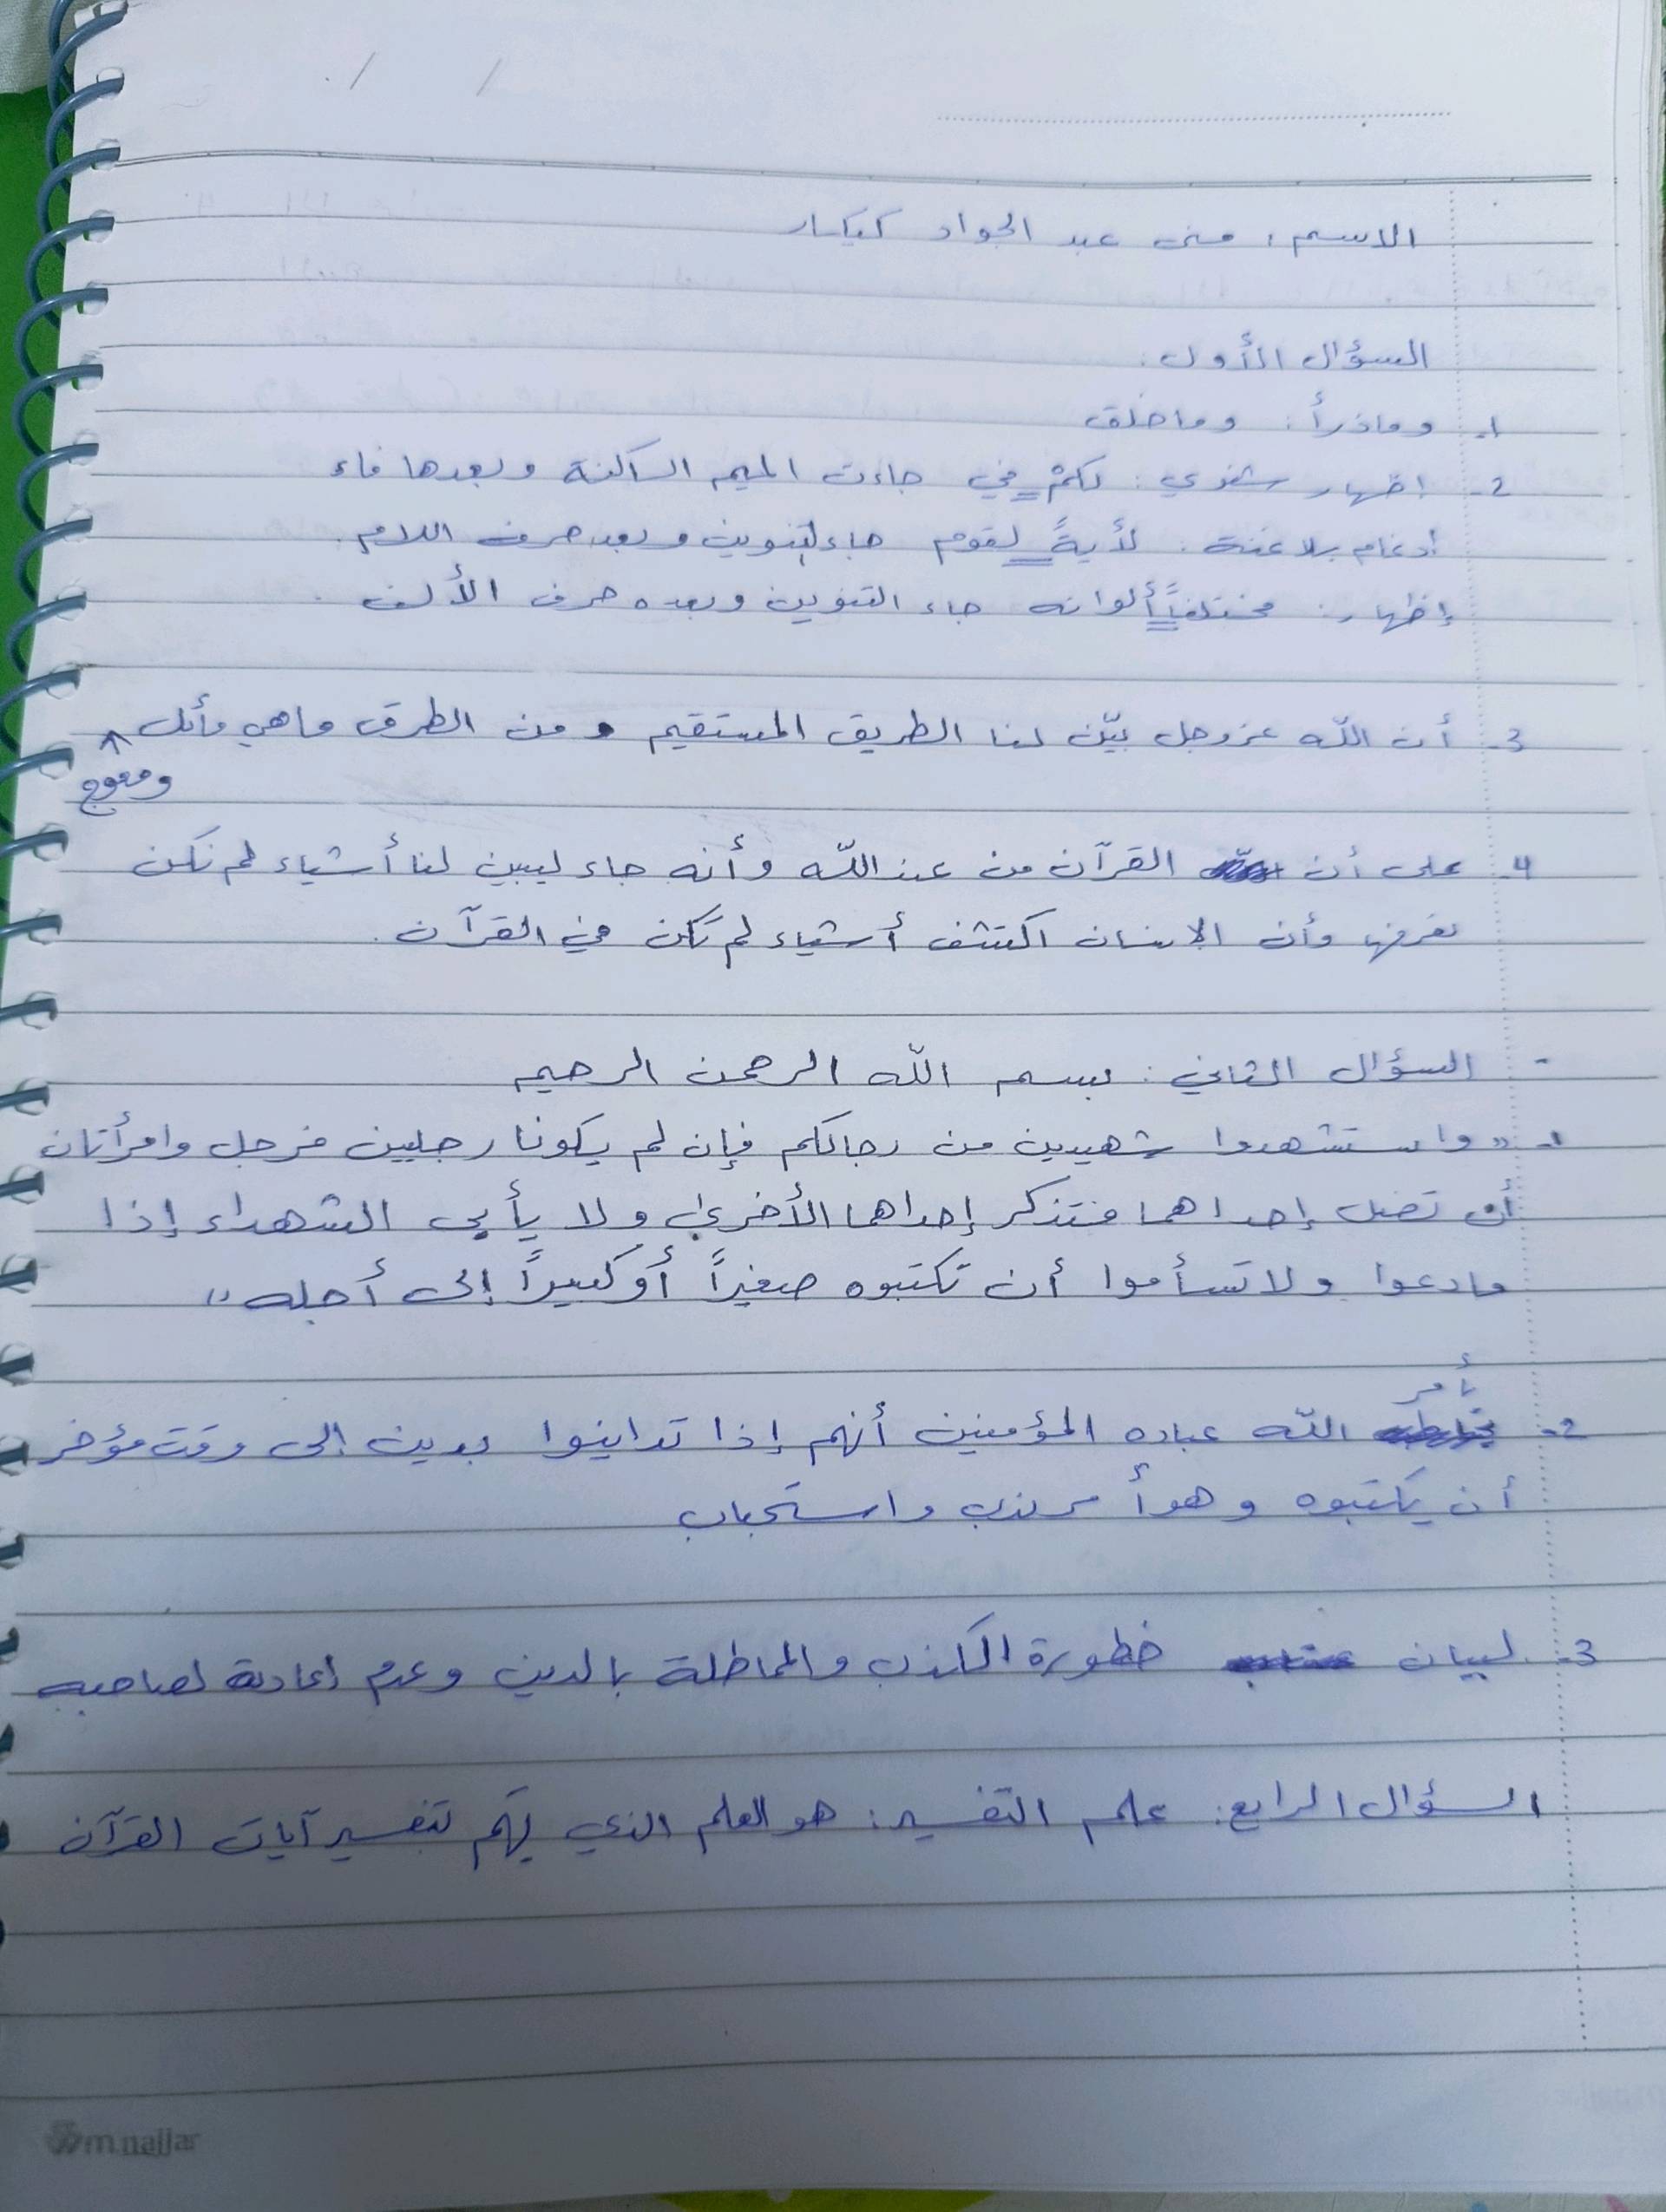 الاسم: منى عبد الجواد كيكسار
السؤال الأول:
1. وماذرأ: وماخلق
2. اظهار شفوي: لكمْ في جاءت الميم الساكنة وبعدها فاء
ادغام بلا غنة: لأيةً لقوم جاء التنوين وبعد حرف اللام.
إظهار: مختلفاً ألوانه جاء التنوين وبعده حرف الألف.
3. أن الله عزوجل بيّن لنا الطريق المستقيم ومن الطرق ماهي مأئل
ومعوج
4. على أن القرآن من عند الله وأنه جاء ليبين لنا أشياء لم نكن
نعرفها وأن الإنسان اكتشف أشياء لم تكن في القرآن.
- السؤال الثاني: بسم الله الرحمن الرحيم
1. "واستشهدوا شهيدين من رجالكم فإن لم يكونا رجلين فرجل وامرأتان
أن تضل إحداهما فتذكر إحداهما الأخرى ولا يأبى الشهداء إذا
مادعوا ولا تسأموا أن تكتبوه صغيراً أو كبيراً إلى أجله"
يأمر
2. الله عباده المؤمنين أنهم إذا تداينوا بدين إلى وقت مؤخر
أن يكتبوه وهو أمر ندب واستحباب
3. لبيان خطورة الكذب والمماطلة بالدين وعدم إعادته لصاحبه
السؤال الرابع: علم التفسير: هو العلم الذي يهتم تفسير آيات القرآن
m.najjar